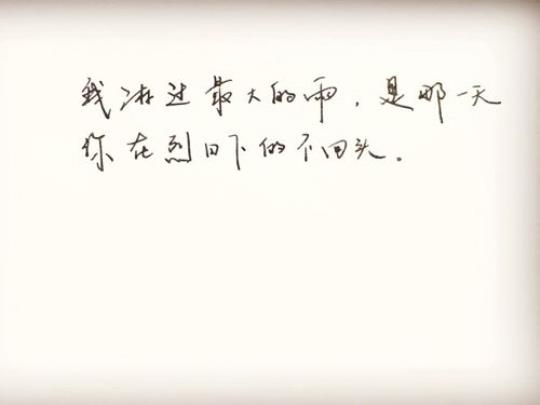 我淋过最大的雨，是那一天
你在烈日下的不回头。